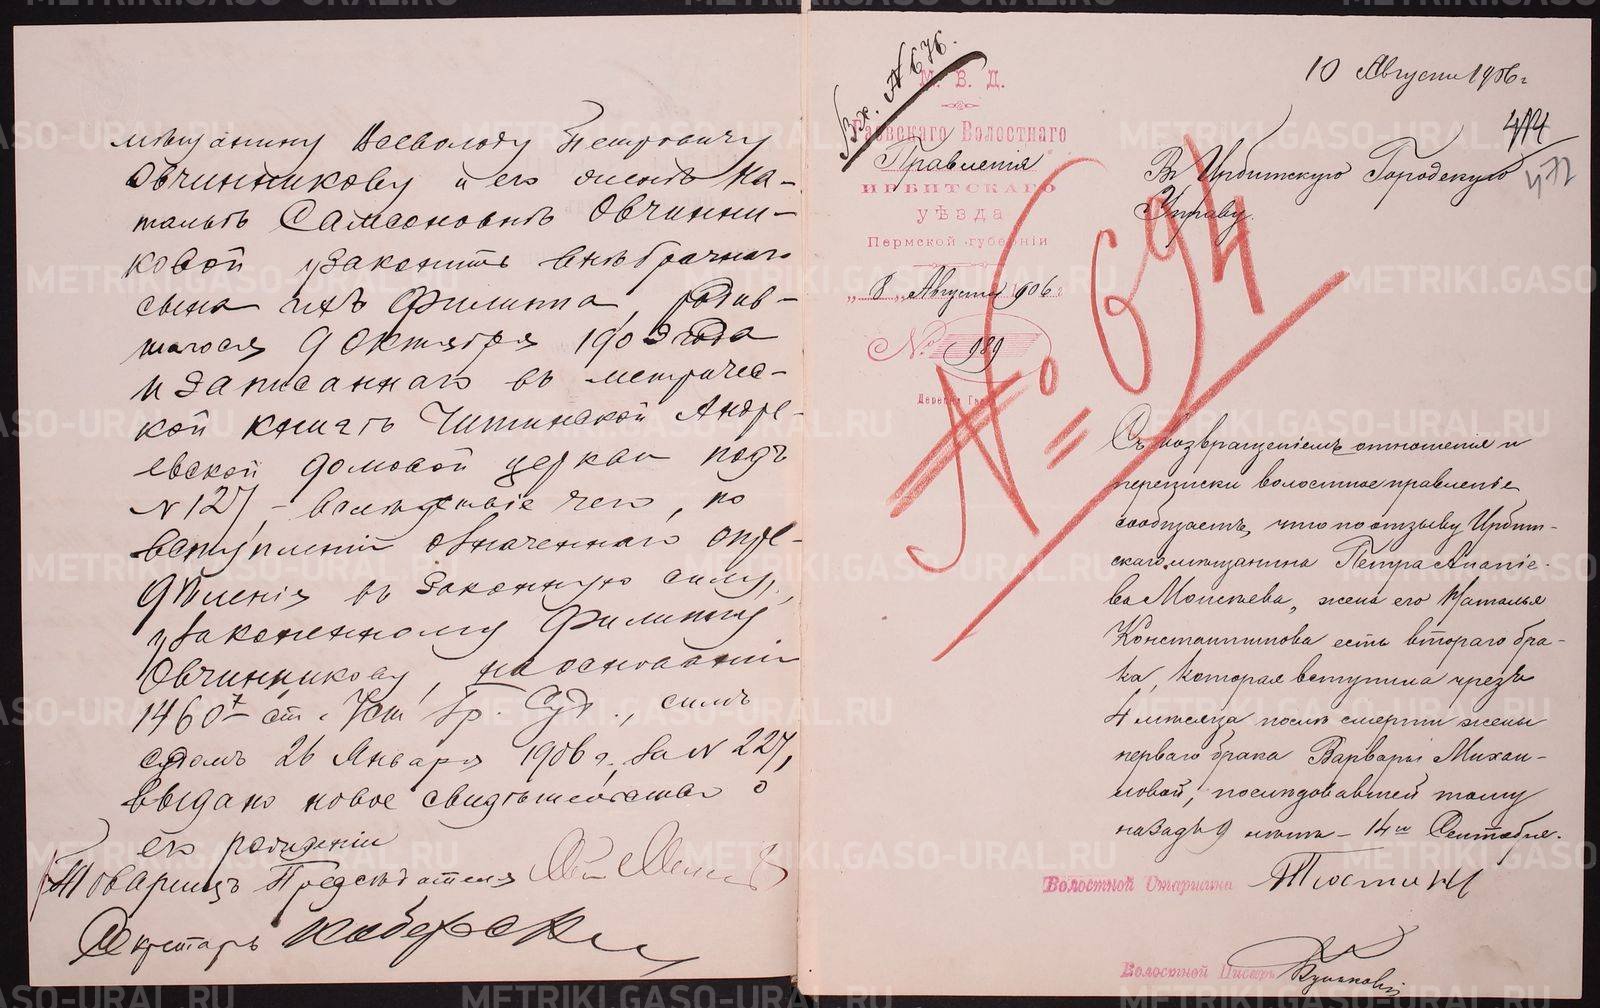 мѣщанину Всеволоду Петровичу
Овчинникову и его женѣ На-
тальѣ Самсоновнѣ Овчинни-
ковой узаконить внѣбрачнаго
сына ихъ Филиппа, родив-
шагося 9 Октября 1903 года
и записаннаго въ метриче-
ской книгѣ Читинской Андре-
евской домовой церкви подъ
N 127, - вслѣдствіе чего, по
вступленіи означеннаго опре-
дѣленія въ законную силу,
узаконенному Филиппу
Овчинникову, на основаніи
1460⁷ ст. Уст. Гр. Суд., симъ
судомъ 26 Января 1906 г. за N 227,
выдано новое свидѣтельство о
его рожденіи
Товарищъ Предсѣдателя
Секретарь
Вх. N 676.
М. В. Д.
Гаевскаго Волостнаго
Правленія
ИРБИТСКАГО
уѣзда
Пермской губерніи
„8„ Августа 1906 г.
№ 989
Деревня Гаева
10 Августа 1906 г
472
Въ Ирбитскую Городскую
Управу.
№ 694
Съ возвращеніемъ отношенія и
переписки волостное правленіе
сообщаетъ, что по отзыву Ирбит-
скаго мѣщанина Петра Ананіе-
ва Моисѣева, жена его Наталья
Константинова есть втораго бра-
ка, которая вступила чрезъ
4 мѣсяца послѣ смерти жены
перваго брака Варвары Михаи-
ловой, послѣдовавшей тому
назадъ 9 лѣтъ - 14го Сентября.
Волостной Старшина
Волостной Писарь
METRIKI.GASO-URAL.RU